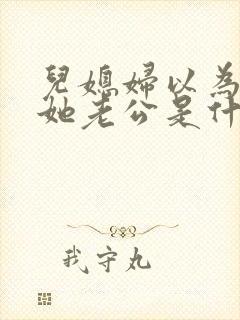 兒媳婦以為
她老公是什
我守丸